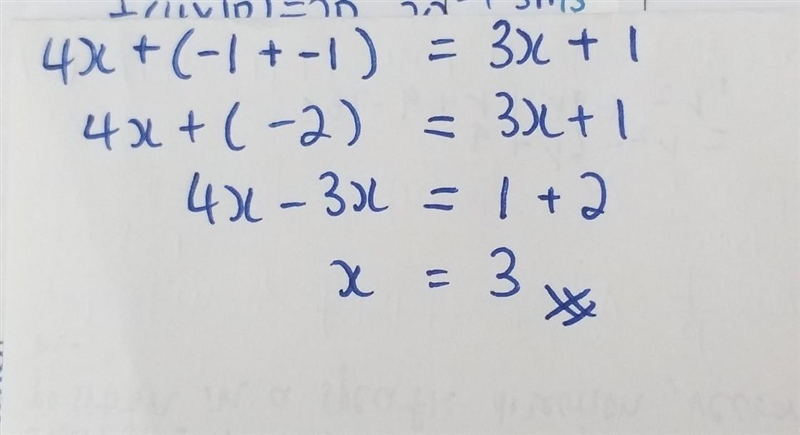 4x + (-1 + -1) = 3x + 1
4x + (-2) = 3x + 1
4x - 3x = 1 + 2
x = 3